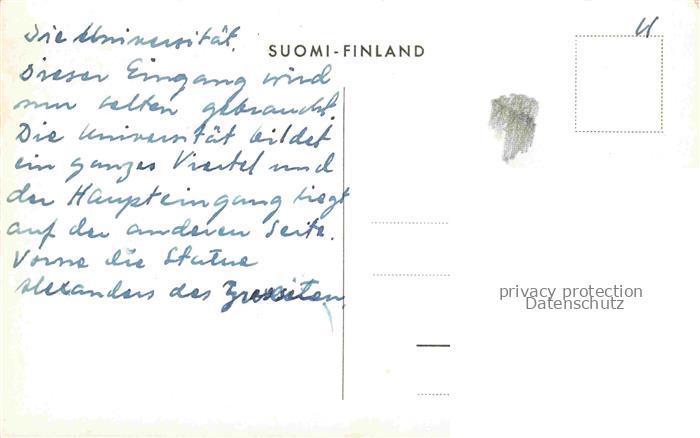 Die Universität.
SUOMI-FINLAND
Dieser Eingang wird
nur selten gebraucht.
Die Universität bildet
ein ganzes Viertel und
der Haupteingang liegt
auf der anderen Seite.
Vorne die Statue
Alexanders des Zweiten.
privacy protection
Datenschutz